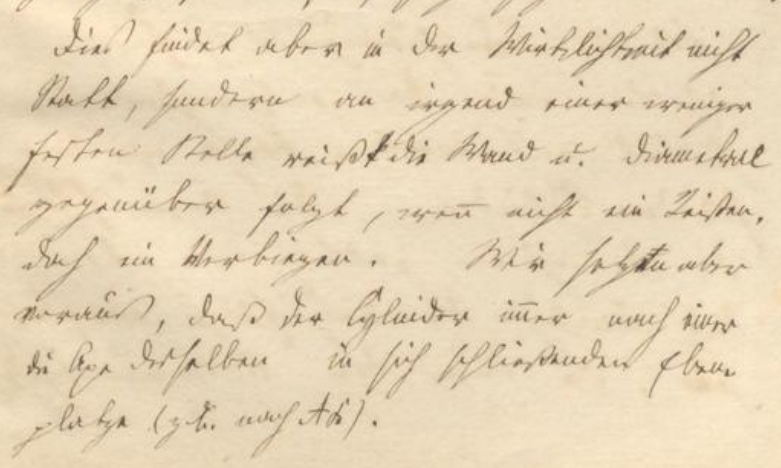 Dies findet aber in der Wirklichkeit nicht
Statt, sondern an irgend einer weniger
festen Stelle reißt die Wand u. diametral
gegenüber folgt, wen̄ nicht ein Reißen,
doch ein Verbiegen. Wir setzen aber
voraus, daß der Cylinder im̄er nach einer
die Axe desselben in sich schließenden Ebene
platze (z. B. nach AB).